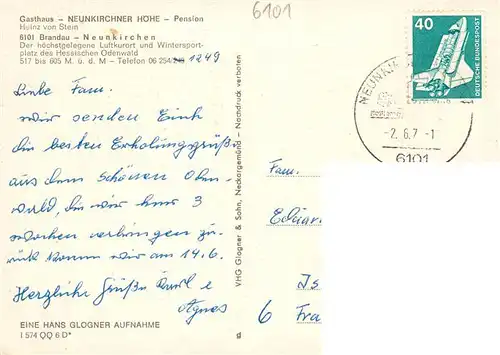 6101
Gasthaus – NEUNKIRCHNER HÖHE – Pension
Heinz von Stein
6101 Brandau – Neunkirchen
Der höchstgelegene Luftkurort und Wintersport-
platz des Hessischen Odenwald
517 bis 605 M. ü. d. M – Telefon 06 254/ 1249
Liebe Fam.
wir senden Euch
die besten Erholungsgrüße
aus dem Schönen Oden-
wald, die wir hier 3
wochen verbringen zu-
rück komm wir am 14.6.
Herzliche Grüße Karl e
Agnes
EINE HANS GLOGNER AUFNAHME
I 574 QQ 6 D*
VHG Glogner & Sohn, Neckargemünd – Nachdruck verboten
g
40
DEUTSCHE BUNDESPOST
NEUNKI
-2.6.7 -1
6101
Fam.
Eduar
Is
6 Fra